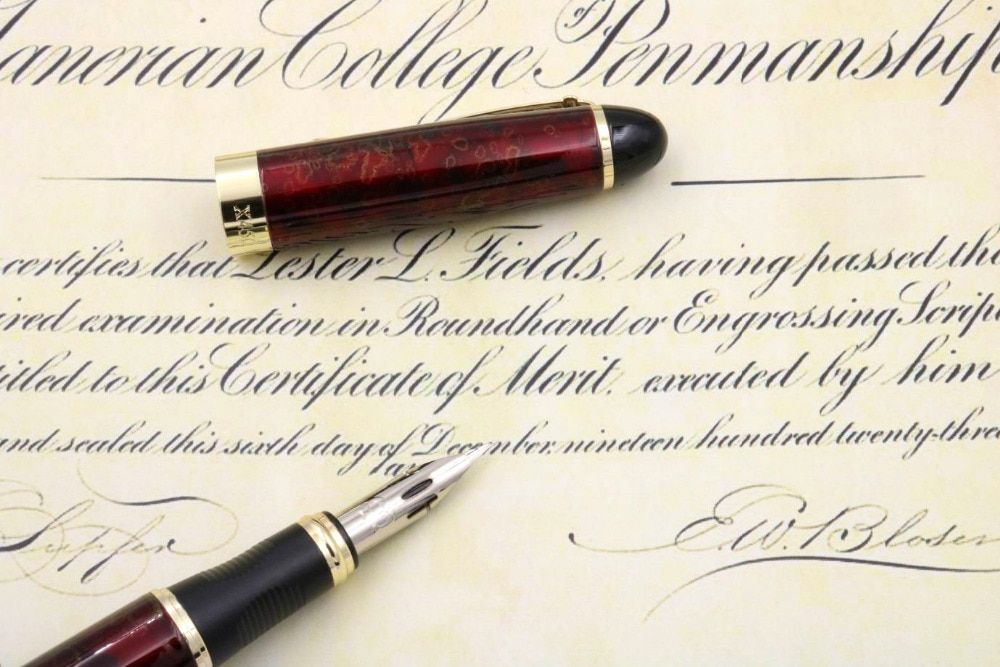 anerian College of Penmanship
X450
certifies that Lester L. Fields, having passed the
ired examination in Roundhand or Engrossing Script
itled to this Certificate of Merit, executed by him
and sealed this sixth day of December, nineteen hundred twenty-three
E.W. Bloser